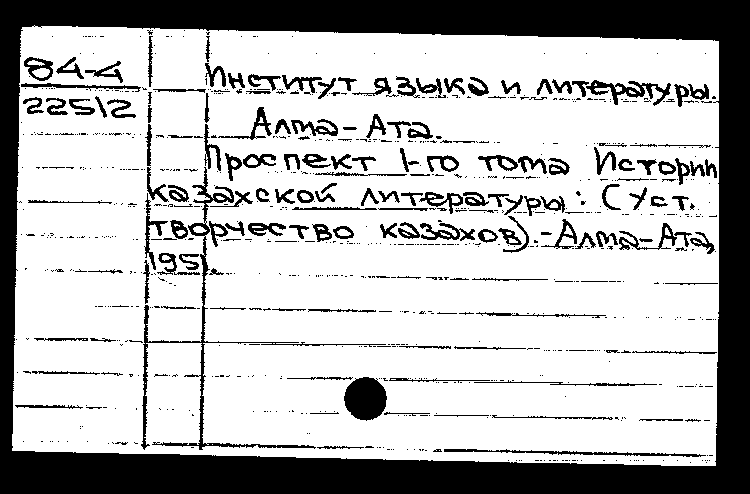 84-4
22512
Институт языка и литературы.
Алма-Ата.
Проспект 1-го тома Истории
казахской литературы: (Уст.
творчество казахов).-Алма-Ата,
1951.